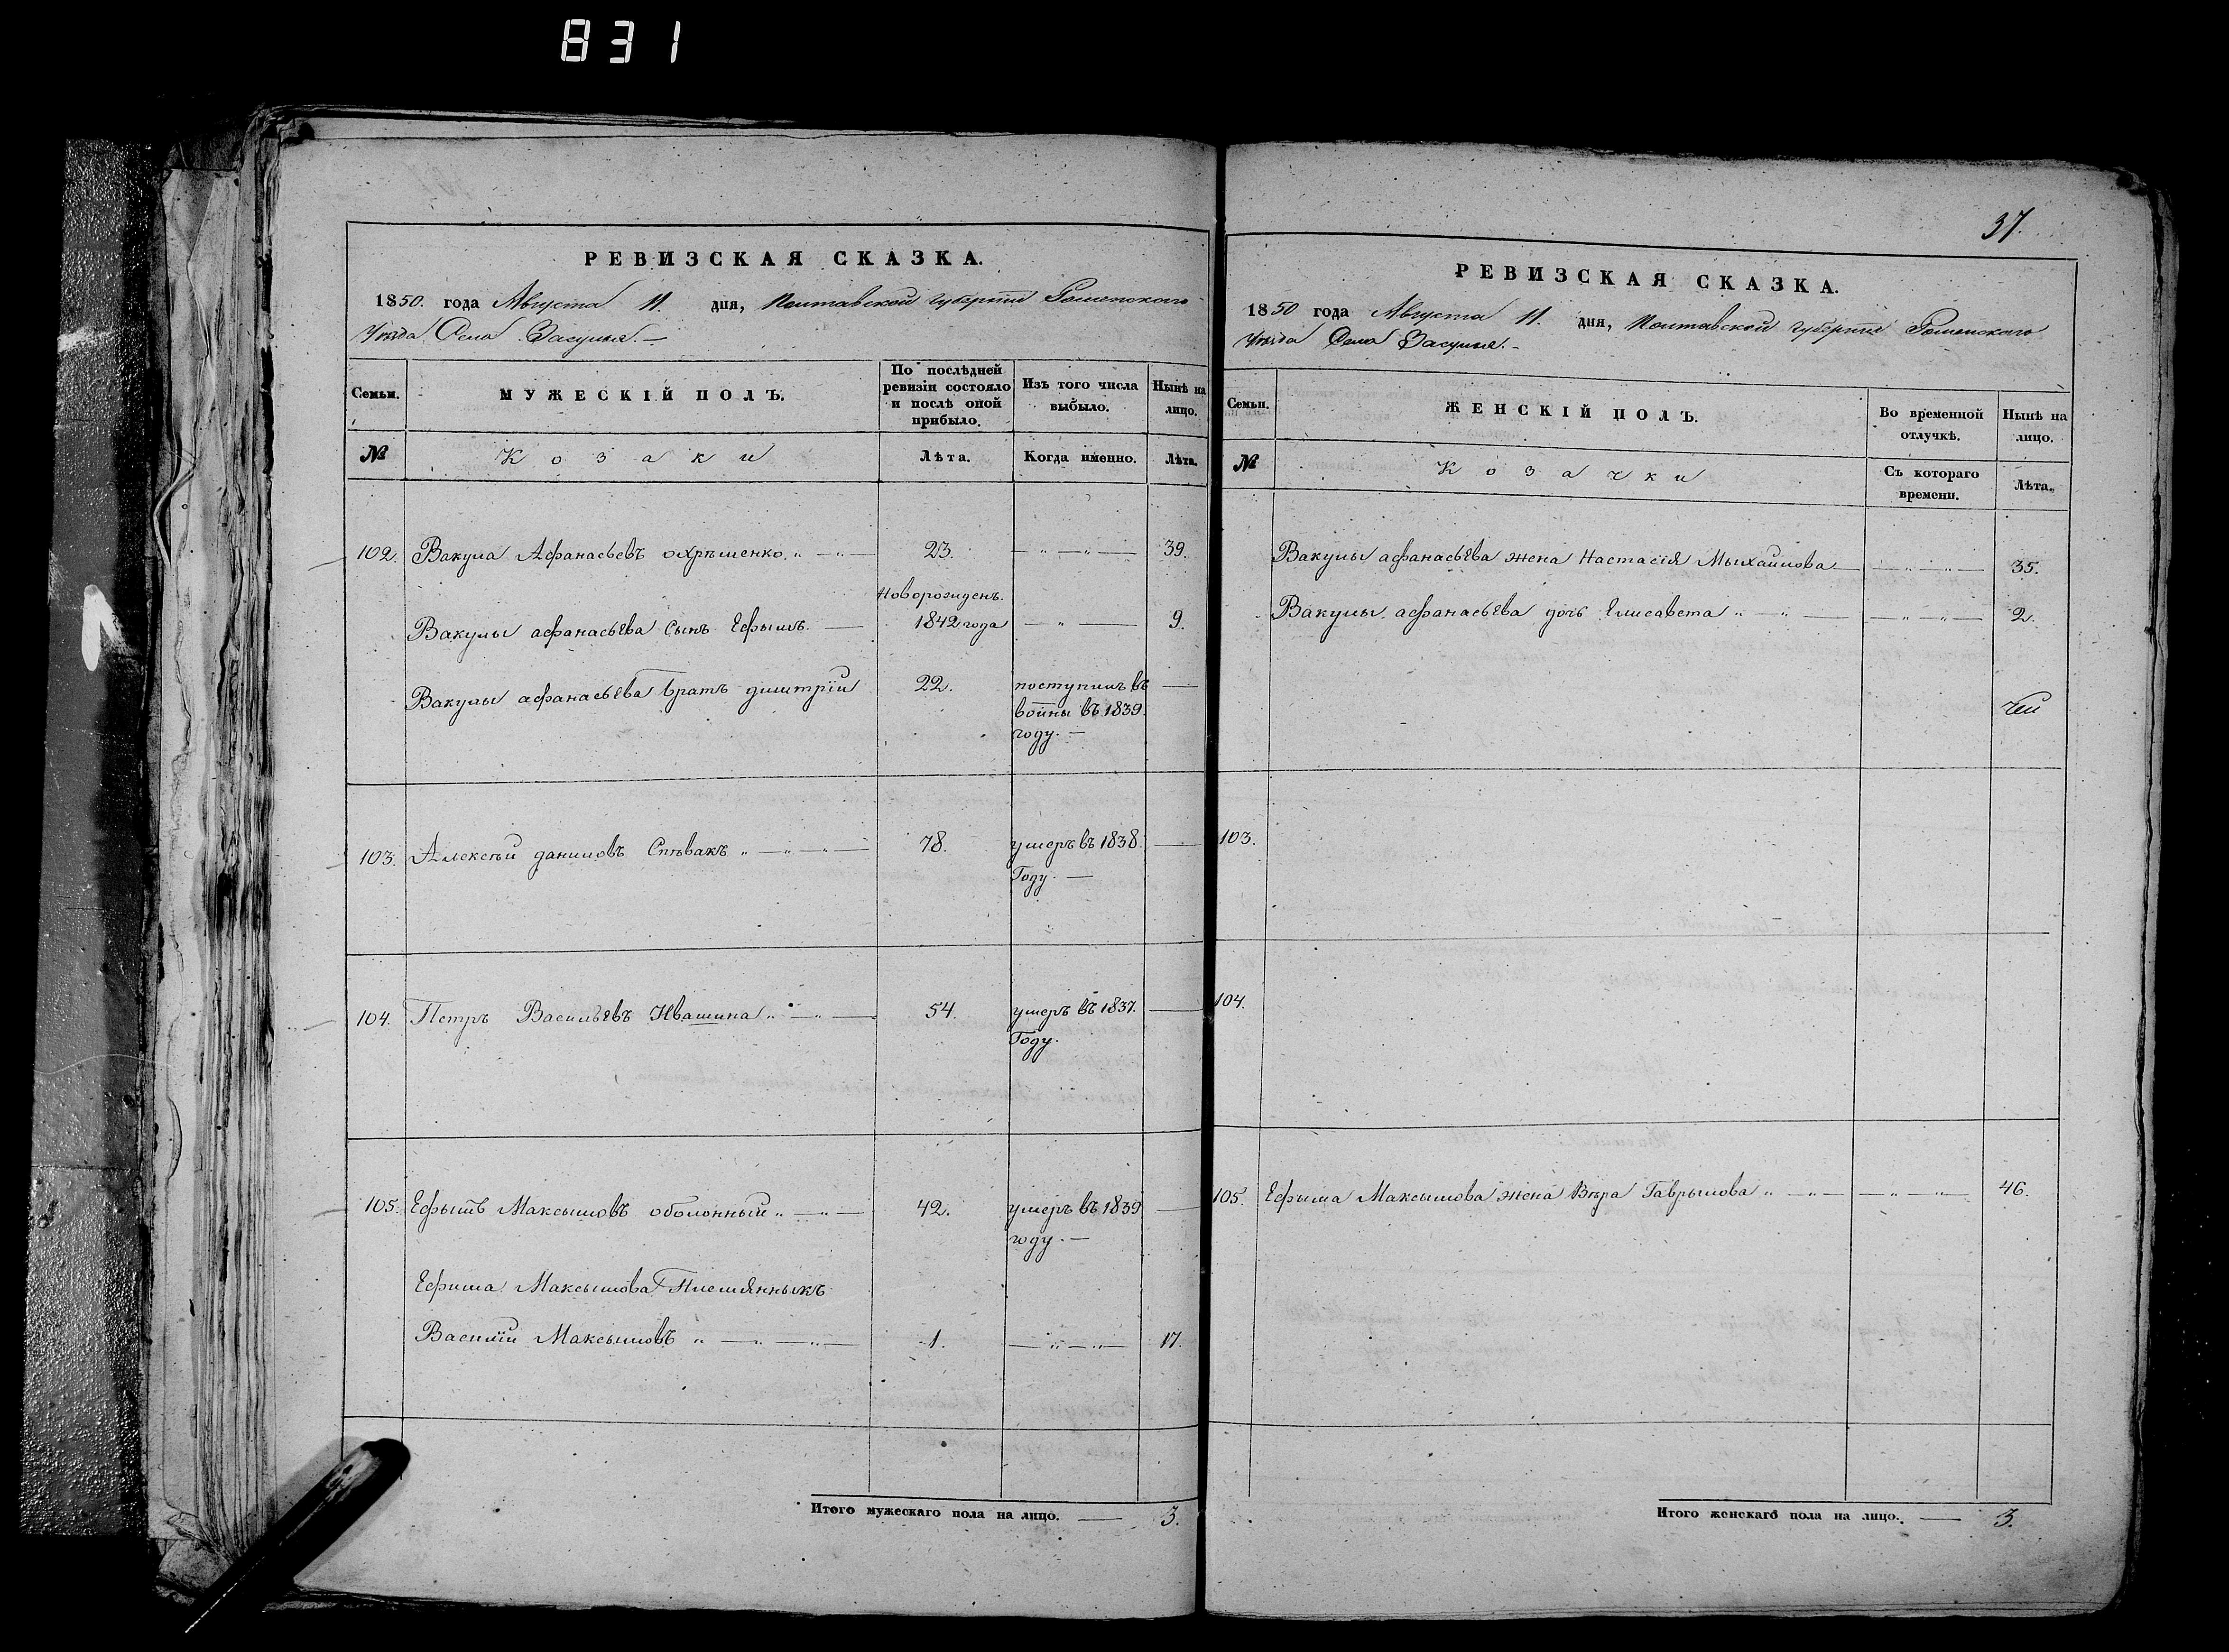 831
РЕВИЗСКАЯ СКАЗКА.
1850. года Августа 11. дня, Полтавской губернии Роменского
Уѣзда Села Засулья. —
Семьи. МУЖЕСКІЙ ПОЛЪ. По послѣдней ревизіи состояло и послѣ оной прибыло. Изъ того числа выбыло. Нынѣ на лицо.
№ Козаки Лѣта. Когда именно. Лѣта.
102. Вакула Афанасьевъ охрѣменко „ — „ — 23. — „ — „ — 39.
Новорожденъ.
Вакулы афанасьева Сынъ Ефымъ. — 1842 года — „ — 9.
Вакулы афанасьева братъ димитрій 22. поступилъ въ —
войны въ 1839.
году. —
103. Алексѣй даниловъ Спѣвакъ „ — „ — „ — 78. умеръ въ 1838. —
Году. —
104. Петръ Васильевъ Ивашина „ — „ — 54. умеръ въ 1837. —
Году.
105. Ефымъ Максымовъ оболонный „ — „ — 42. умеръ въ 1839 —
году. —
Ефима Максымова Племянныкъ
Василій Максымовъ „ — „ — „ — 1. — „ — „ — 17.
Итого мужескаго пола на лицо. — 3.
37.
РЕВИЗСКАЯ СКАЗКА.
1850 года Августа 11. дня, Полтавской губернии Роменского
Уѣзда Села Засулья. -
Семьи. ЖЕНСКІЙ ПОЛЪ. Во временной отлучкѣ. Нынѣ на лицо.
№ Козачки Съ котораго времени. Лѣта.
Вакулы афанасьева жена Настасія Мыхайлова — — „ — „ — 35.
Вакулы афанасьева дочь Елисавета „ — „ — — „ — „ — 2.
103.
104.
105. Ефыма Максымова жена Вѣра Гаврылова „ — „ — — „ — „ — 46.
Итого женскаго пола на лицо. — 3.